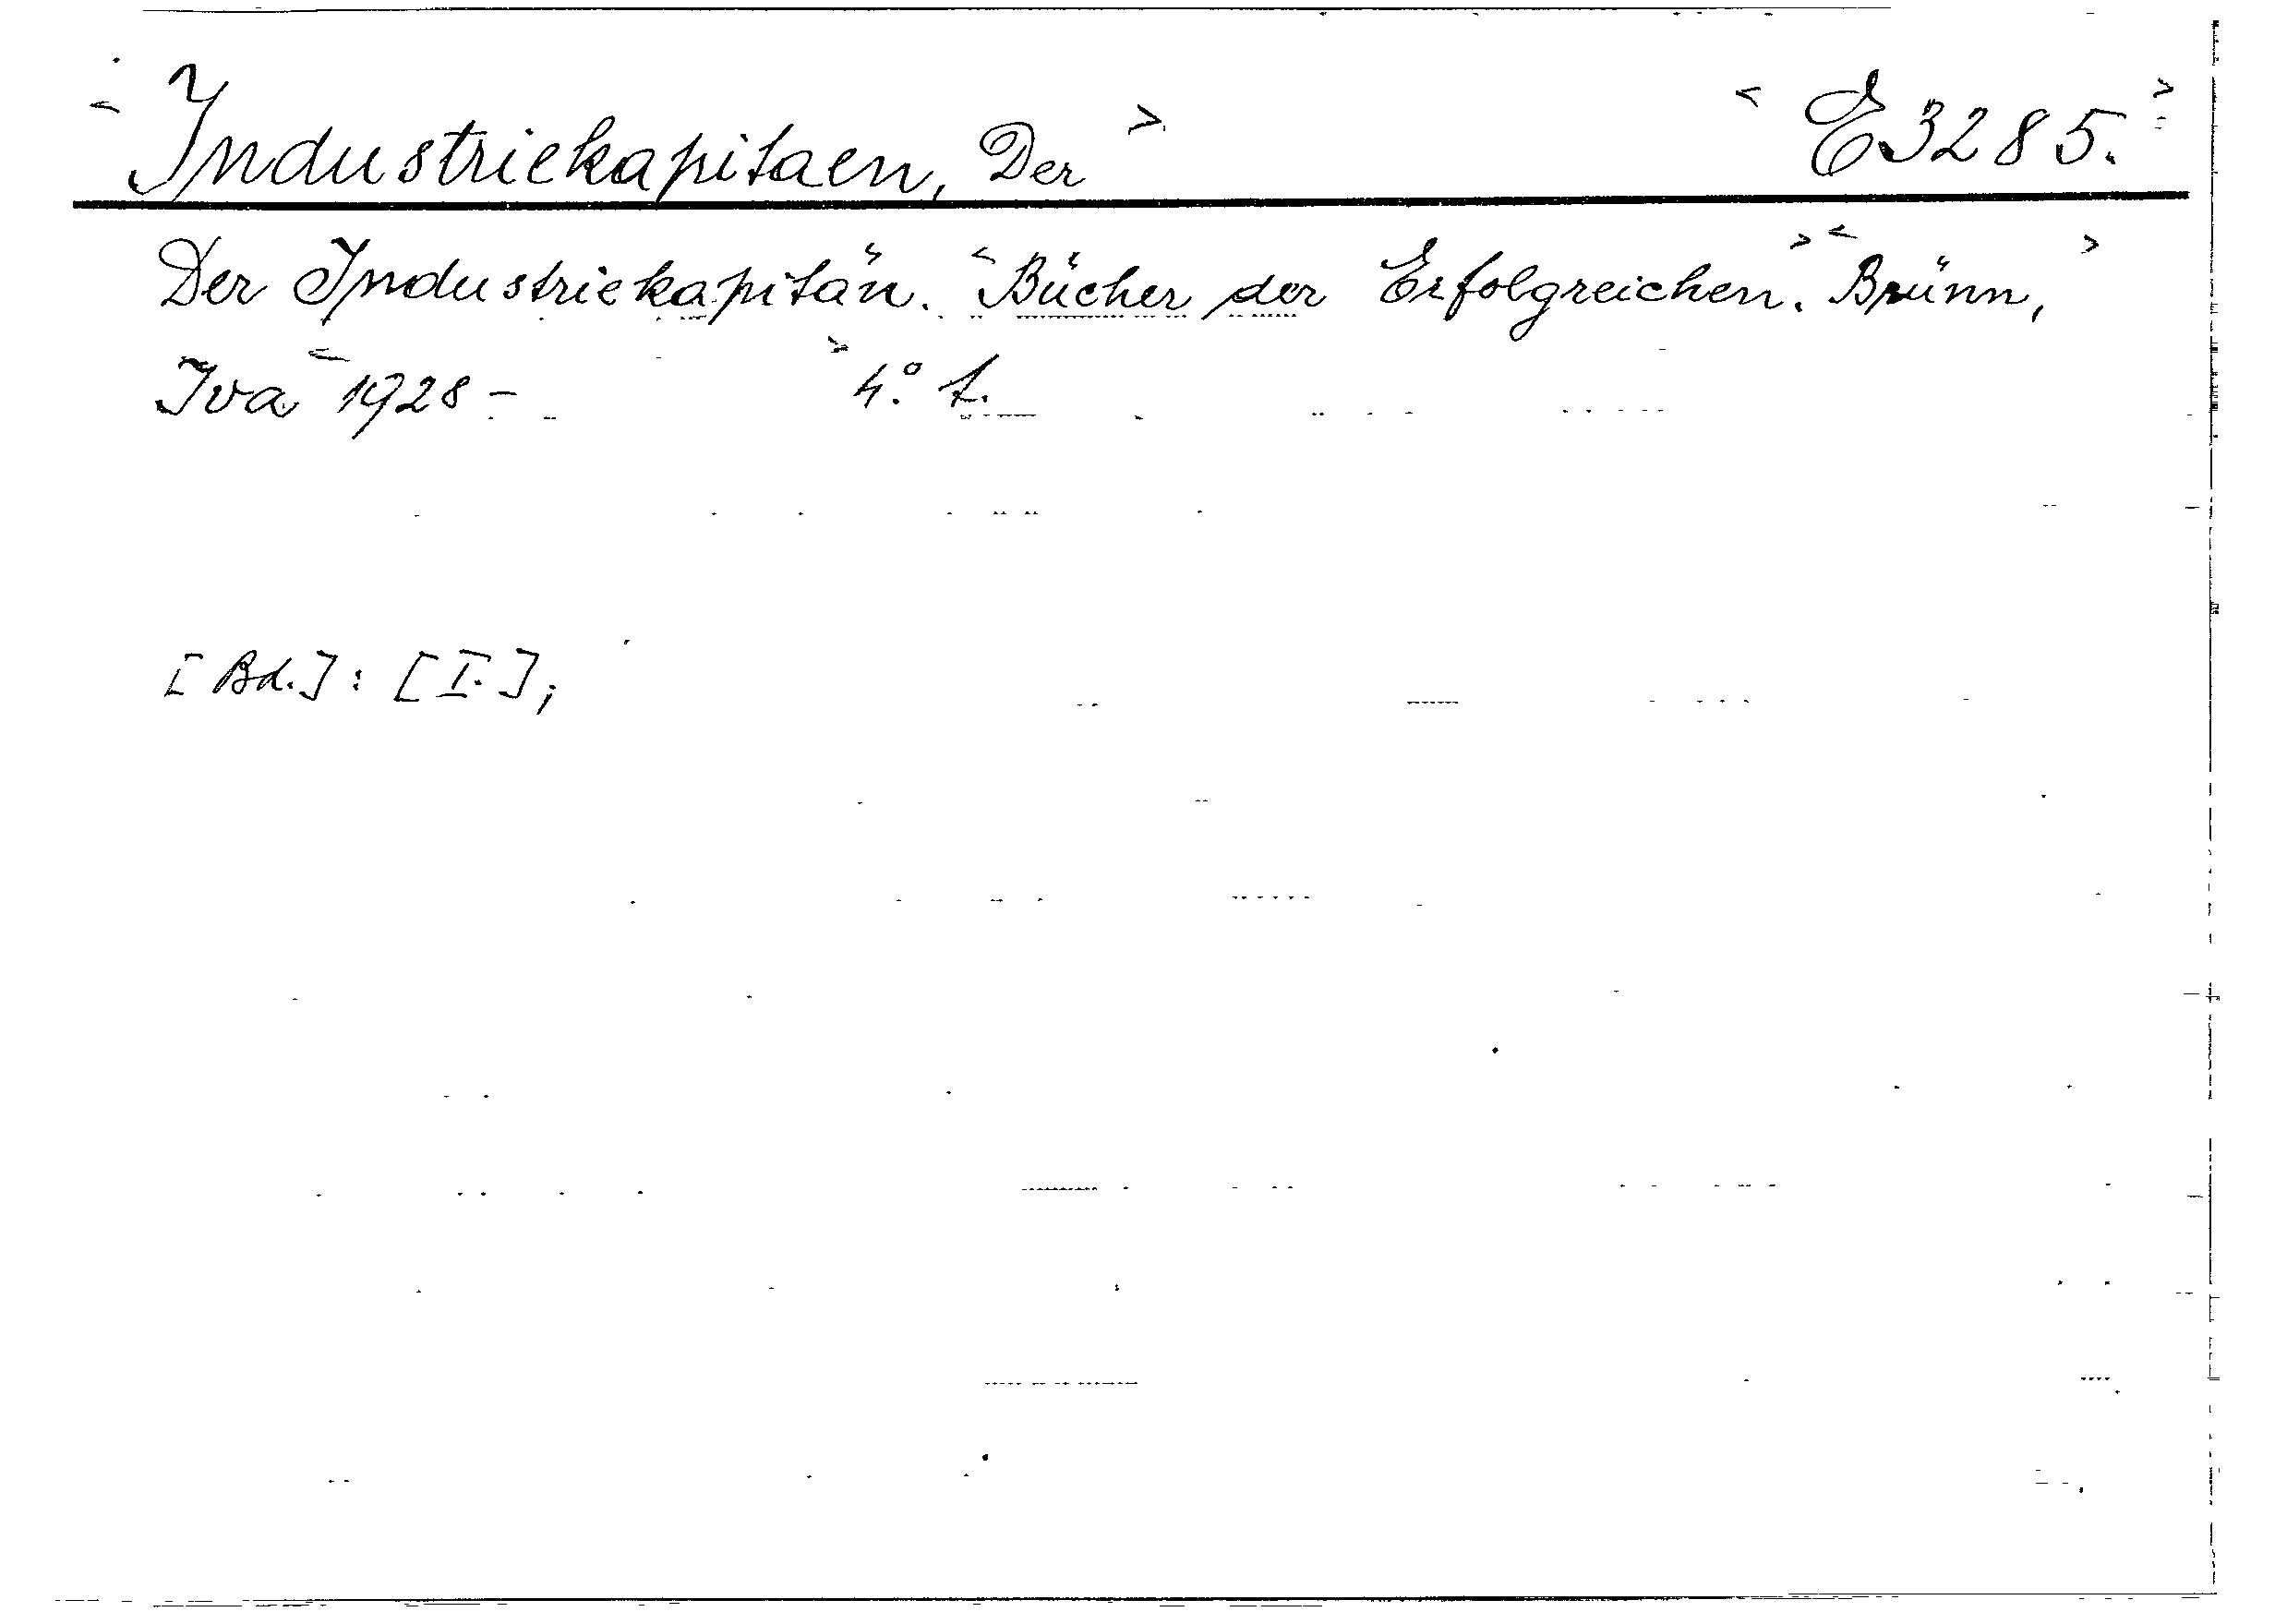 <Industriekapitaen, Der> <E3285.>
Der Industriekapitän. <Bücher der Erfolgreichen.> <Brünn,>
Iva <1928 - > 4.° t.
[Bd.]: [I.];